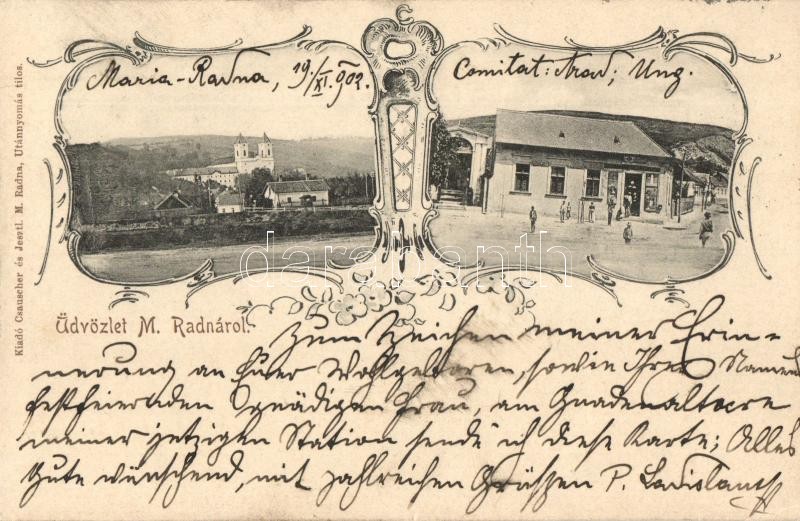 Maria-Radna, 19/XI. 902.
Comitat: Arad; Ung.
Kiadó Csauscher és Jesztl. M. Radna, Utánnyomás tilos.
darabanth
Üdvözlet M. Radnáról.
Zum Zeichen meiner Erin-
nerung an Euer Wohlgeboren, sowie Ihrer Namens
festfeiernden Gnädigen Frau, am Gnadenaltare
meiner jetzigen Station sende ich diese Karte; Alles
Gute wünschend, mit zahlreichen Grüssen P. Ladislaus